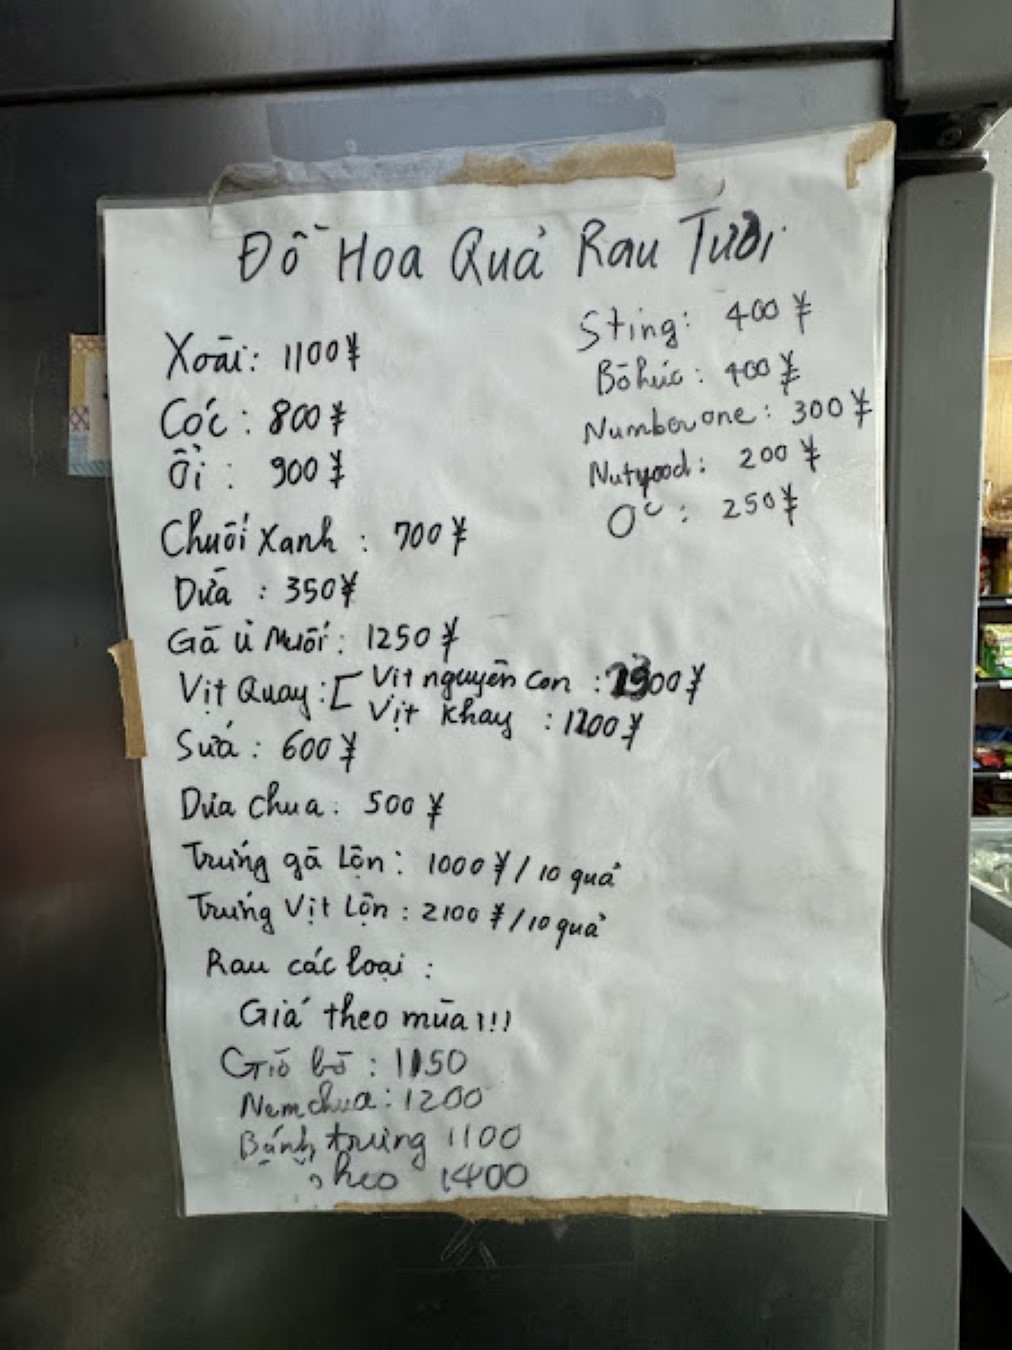 Đồ Hoa Quả Rau Tươi
Xoài: 1100¥
Cóc: 800¥
Ổi: 900¥
Chuối Xanh: 700¥
Dừa: 350¥
Gà ủ Muối: 1250¥
Vịt Quay: [ Vịt nguyên con: 00¥
Vịt Khay: 1200¥
Sứa: 600¥
Dưa chua: 500¥
Trứng gà Lộn: 1000¥/10 quả
Trứng Vịt Lộn: 2100¥/10 quả
Rau các loại:
Giá theo mùa!!!
Giò bò: 1150
Nem chua: 1200
Bánh trưng 1100
heo 1400
Sting: 400¥
Bò húc: 400¥
Number one: 300¥
Nutyood: 200¥
O°C: 250¥